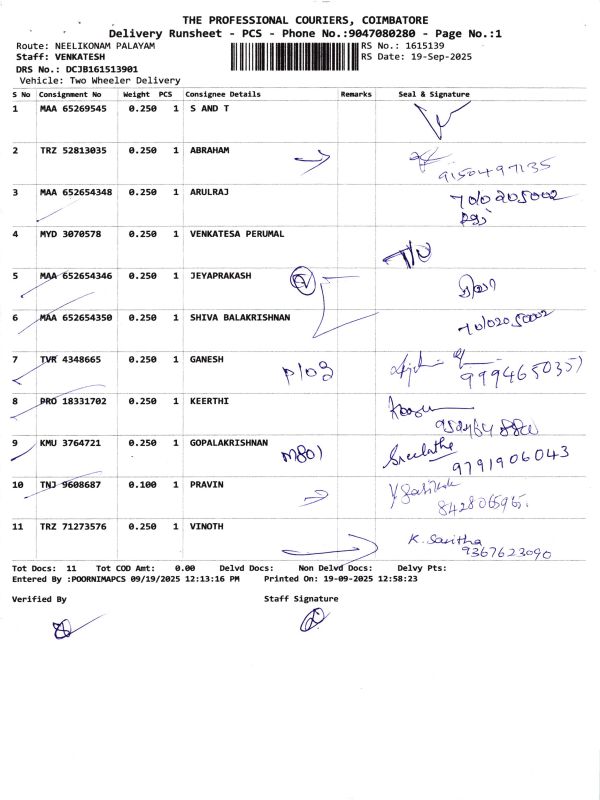 THE PROFESSIONAL COURIERS, COIMBATORE
Delivery Runsheet - PCS - Phone No.:9047080280 - Page No.:1
Route: NEELIKONAM PALAYAM RS No.: 1615139
Staff: VENKATESH RS Date: 19-Sep-2025
DRS No.: DCJB161513901
Vehicle: Two Wheeler Delivery
S No Consignment No Weight PCS Consignee Details Remarks Seal & Signature
1 MAA 65269545 0.250 1 S AND T
2 TRZ 52813035 0.250 1 ABRAHAM
9150497135
3 MAA 652654348 0.250 1 ARULRAJ
7010205002
4 MYD 3070578 0.250 1 VENKATESA PERUMAL
5 MAA 652654346 0.250 1 JEYAPRAKASH
6 MAA 652654350 0.250 1 SHIVA BALAKRISHNAN
7010205002
7 TVR 4348665 0.250 1 GANESH
P103 9994650351
8 PRO 18331702 0.250 1 KEERTHI
9 KMU 3764721 0.250 1 GOPALAKRISHNAN
M801 Sreelatha
9791906043
10 TNJ 9608687 0.100 1 PRAVIN
8428065965.
11 TRZ 71273576 0.250 1 VINOTH
K. Saritha
9367623090
Tot Docs: 11 Tot COD Amt: 0.00 Delvd Docs: Non Delvd Docs: Delvy Pts:
Entered By :POORNIMAPCS 09/19/2025 12:13:16 PM Printed On: 19-09-2025 12:58:23
Verified By Staff Signature